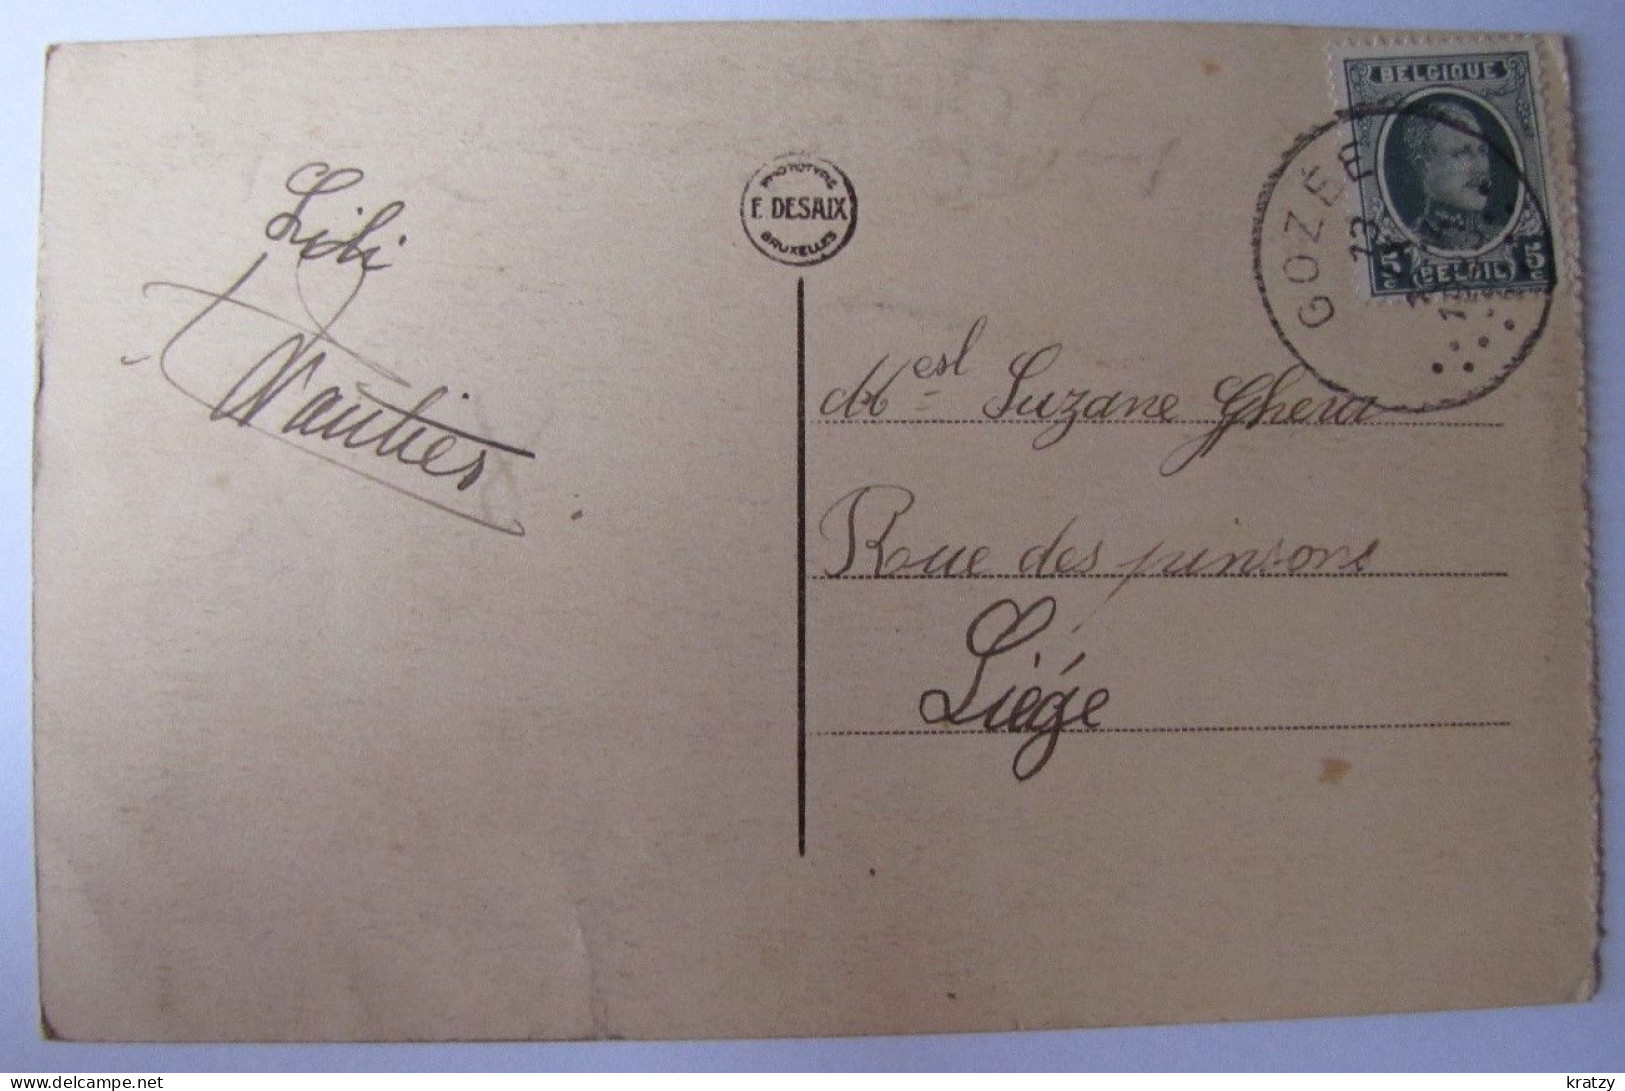 Lili
Wautier
PHOTOTYPIE
F. DESAIX
BRUXELLES
BELGIQUE
5c BELGIË 5c
GOZÉE
13
Mesl Suzane Ghera
Rue des pinsons
Liége
delcampe.net
kratzy